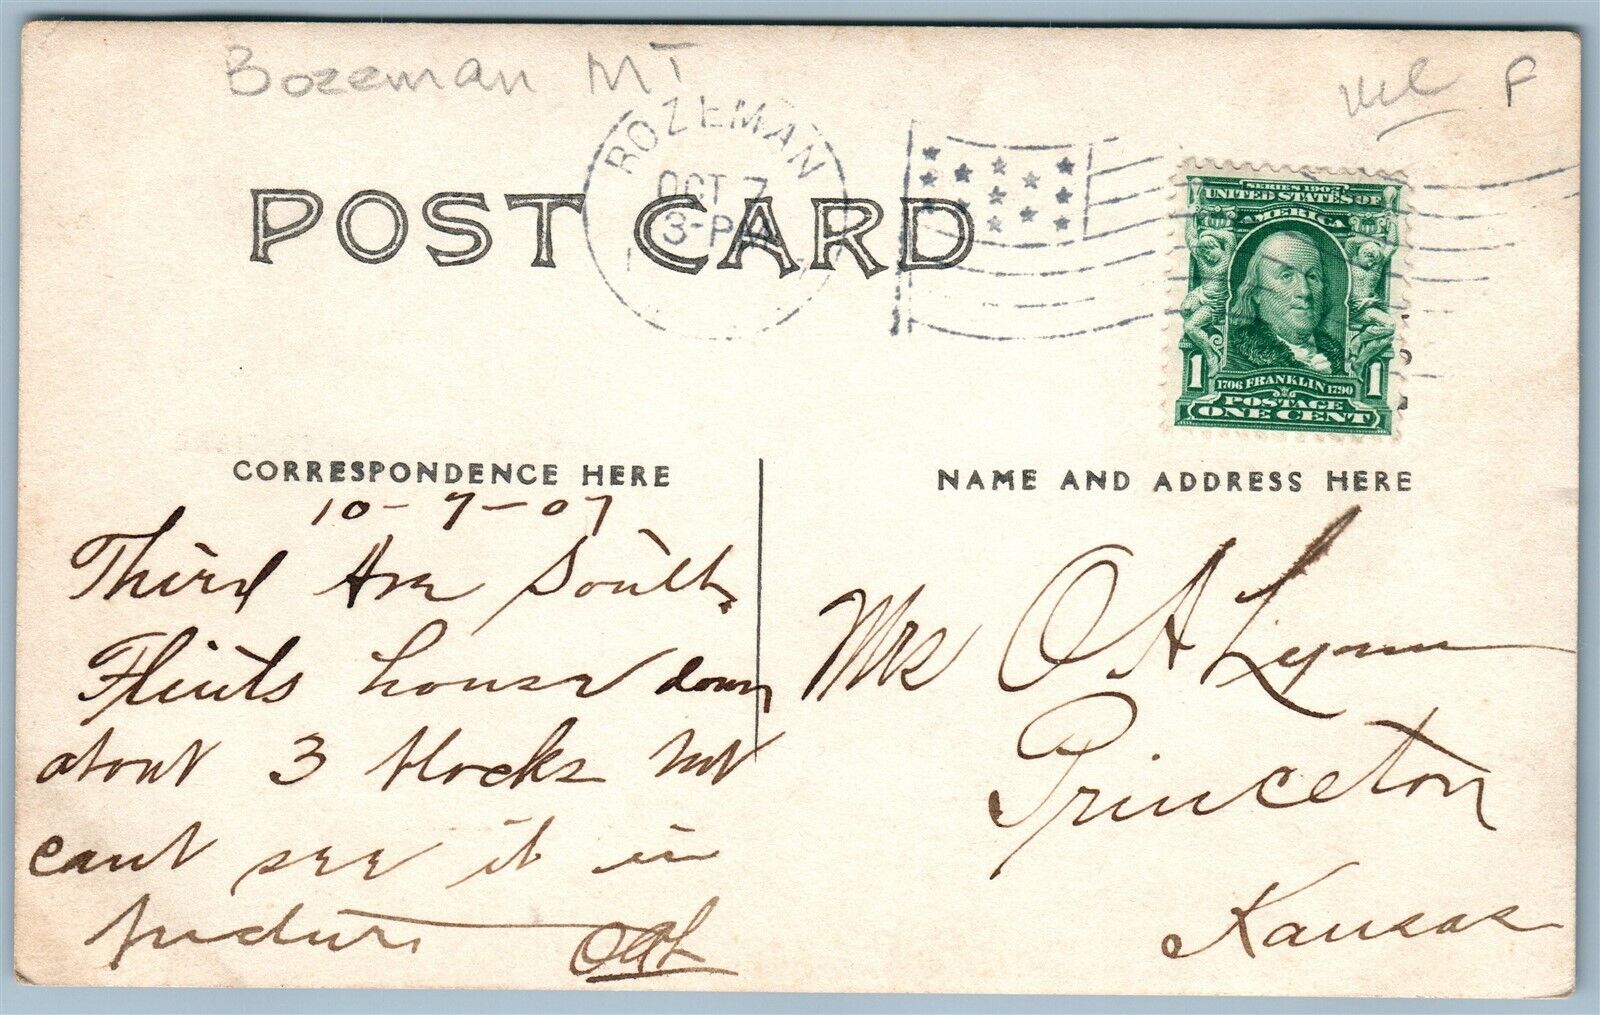 Bozeman MT
F
BOZEMAN
OCT 7
3-PM
POST CARD
SERIES 1902
UNITED STATES OF
AMERICA
1 1
1706 FRANKLIN 1790
POSTAGE
ONE CENT
CORRESPONDENCE HERE
10-7-07
Third Ave South
Flints house down
about 3 blocks but
cant see it in
picture OAL
NAME AND ADDRESS HERE
Mrs O A Lynn
Princeton
Kansas